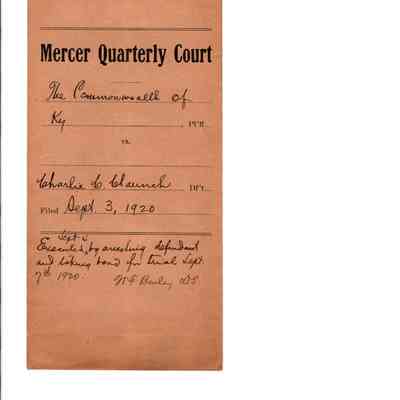 Mercer Quarterly Court
The Commonwealth of
Ky , PFF.
vs.
Charlie C. Claunch DFT.
Filed Sept. 3, 1920
Sept
Executed, by arresting defendant
and taking bond for trial Sept.
7th 1920. D.S.